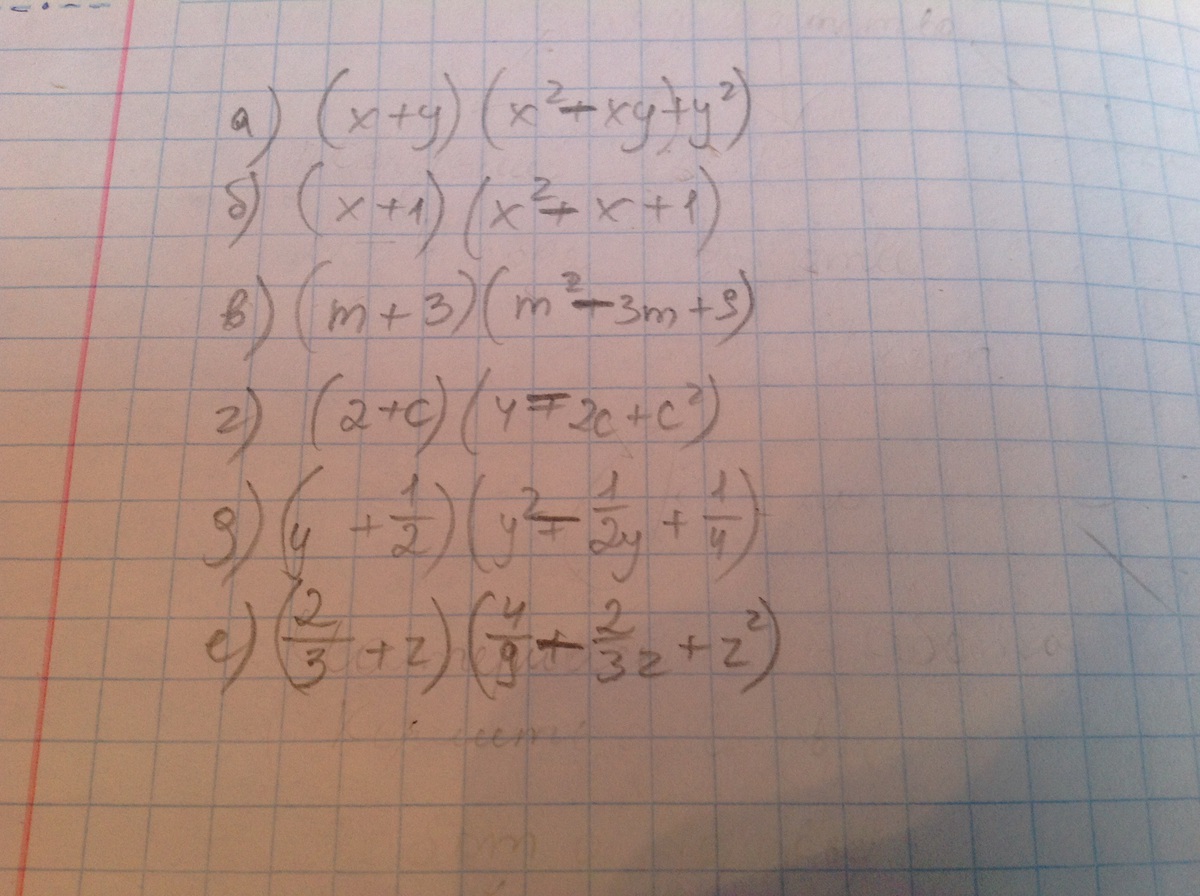 а) (x+y)(x²-xy+y²)
б) (x+1)(x²-x+1)
в) (m+3)(m²-3m+9)
г) (2+c)(4-2c+c²)
д) (y+1/2)(y²-1/2y+1/4)
е) (2/3+z)(4/9-2/3z+z²)